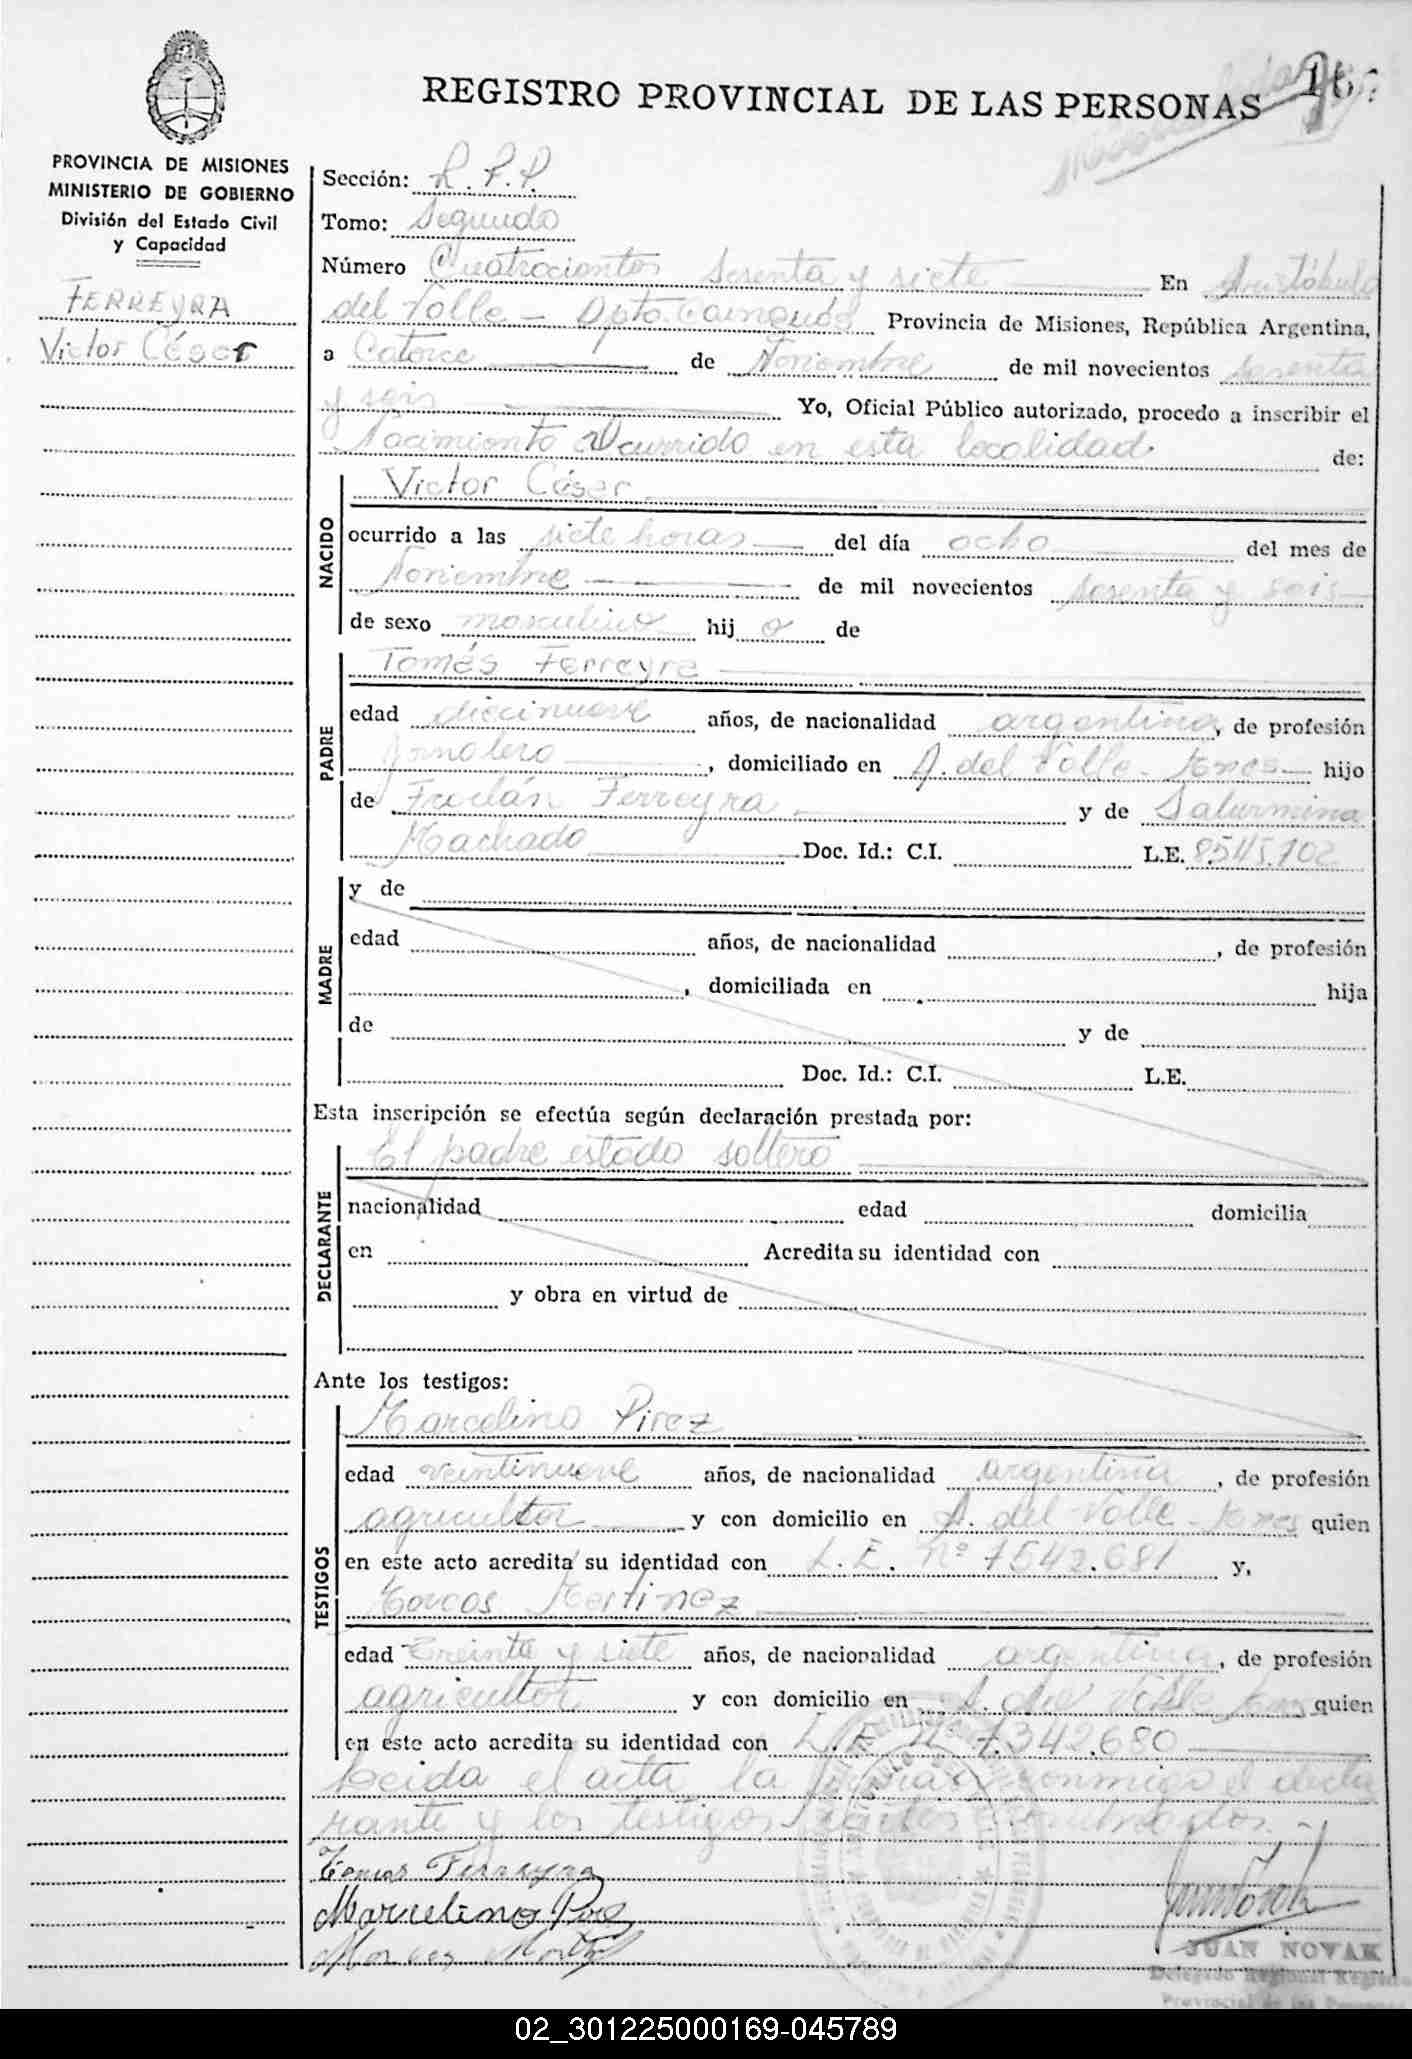 REGISTRO PROVINCIAL DE LAS PERSONAS
PROVINCIA DE MISIONES
MINISTERIO DE GOBIERNO
División del Estado Civil
y Capacidad
FERREYRA
Victor César
Sección:
Tomo: Segundo
Número Cuatrocientos sesenta y siete En Aristóbulo
del Valle - Dpto. Cainguás Provincia de Misiones, República Argentina,
a Catorce de Noviembre de mil novecientos sesenta
y seis Yo, Oficial Público autorizado, procedo a inscribir el
Nacimiento Ocurrido en esta localidad de:
NACIDO
Victor César
ocurrido a las siete horas del día ocho del mes de
Noviembre de mil novecientos sesenta y seis
de sexo masculino hij o de
PADRE
Tomás Ferreyra
edad diecinueve años, de nacionalidad argentina, de profesión
Jornalero, domiciliado en A. del Valle - Mnes hijo
de Froilán Ferreyra y de Saturnina
Machado Doc. Id.: C.I. L.E. 8.545.702
MADRE
y de
edad años, de nacionalidad , de profesión
, domiciliada en hija
de y de
Doc. Id.: C.I. L.E.
Esta inscripción se efectúa según declaración prestada por:
DECLARANTE
El padre estado soltero
nacionalidad edad domicilia
en Acredita su identidad con
y obra en virtud de
Ante los testigos:
TESTIGOS
Marcelino Pirez
edad veintinueve años, de nacionalidad argentina, de profesión
agricultor y con domicilio en A. del Valle - Mnes quien
en este acto acredita su identidad con L. E. Nº 7.542.681 y,
Marcos Martinez
edad treinta y siete años, de nacionalidad argentina, de profesión
agricultor y con domicilio en A. del Valle Mnes quien
en este acto acredita su identidad con L. E. Nº 7.342.680
Leida el acta la firman conmigo el decla
rante y los testigos nombrados.
Tomas Ferreyra
Marcelino
Marcos
JUAN NOVAK
Delegado Regional Registro
Provincial de las Personas
02_301225000169-045789